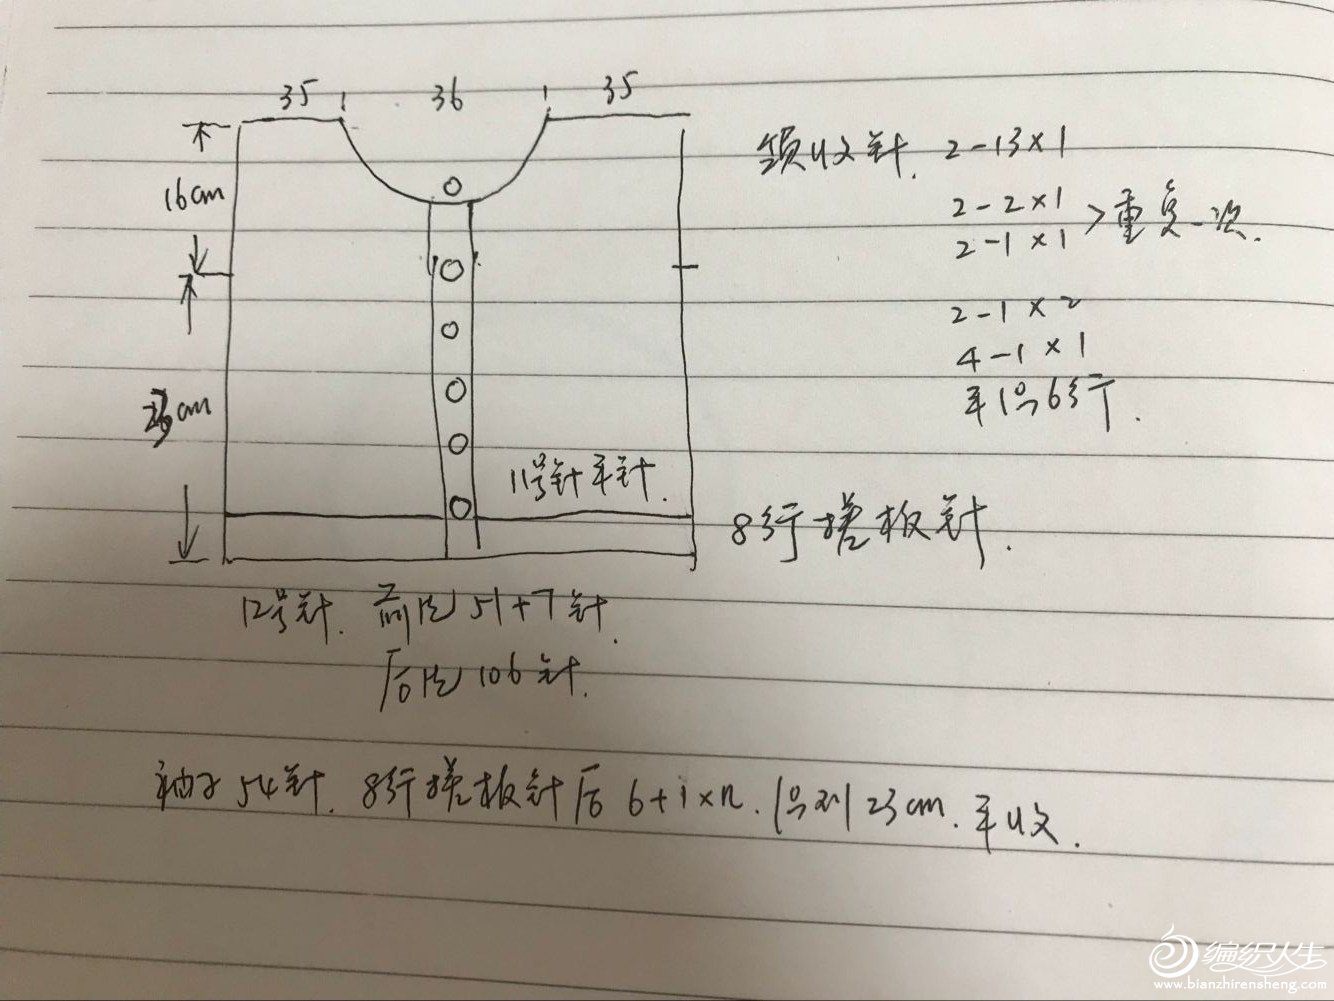 35 36 35
16cm
领收针. 2-13×1
2-2×1
2-1×1 >重复一次.
2-1×2
4-1×1
平织6行.
cm
11号针平针.
8行搓板针.
12号针. 前片51+7针.
后片106针.
袖子54针. 8行搓板针后 6+1×n. 织到23cm. 平收.
编织人生
www.bianzhirensheng.com